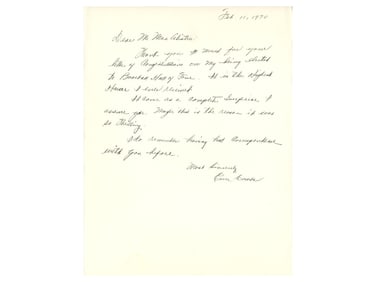 Feb. 11, 1970
Dear Mr. MacAlister
Thank you so much for your
letter of congratulations on my being elected
to Baseball Hall of Fame. It is the highest
Honor I ever received.
It came as a complete surprise I
assure you. Maybe this is the reason it was
so thrilling.
I do remember having had correspondence
with you before.
Most Sincerely